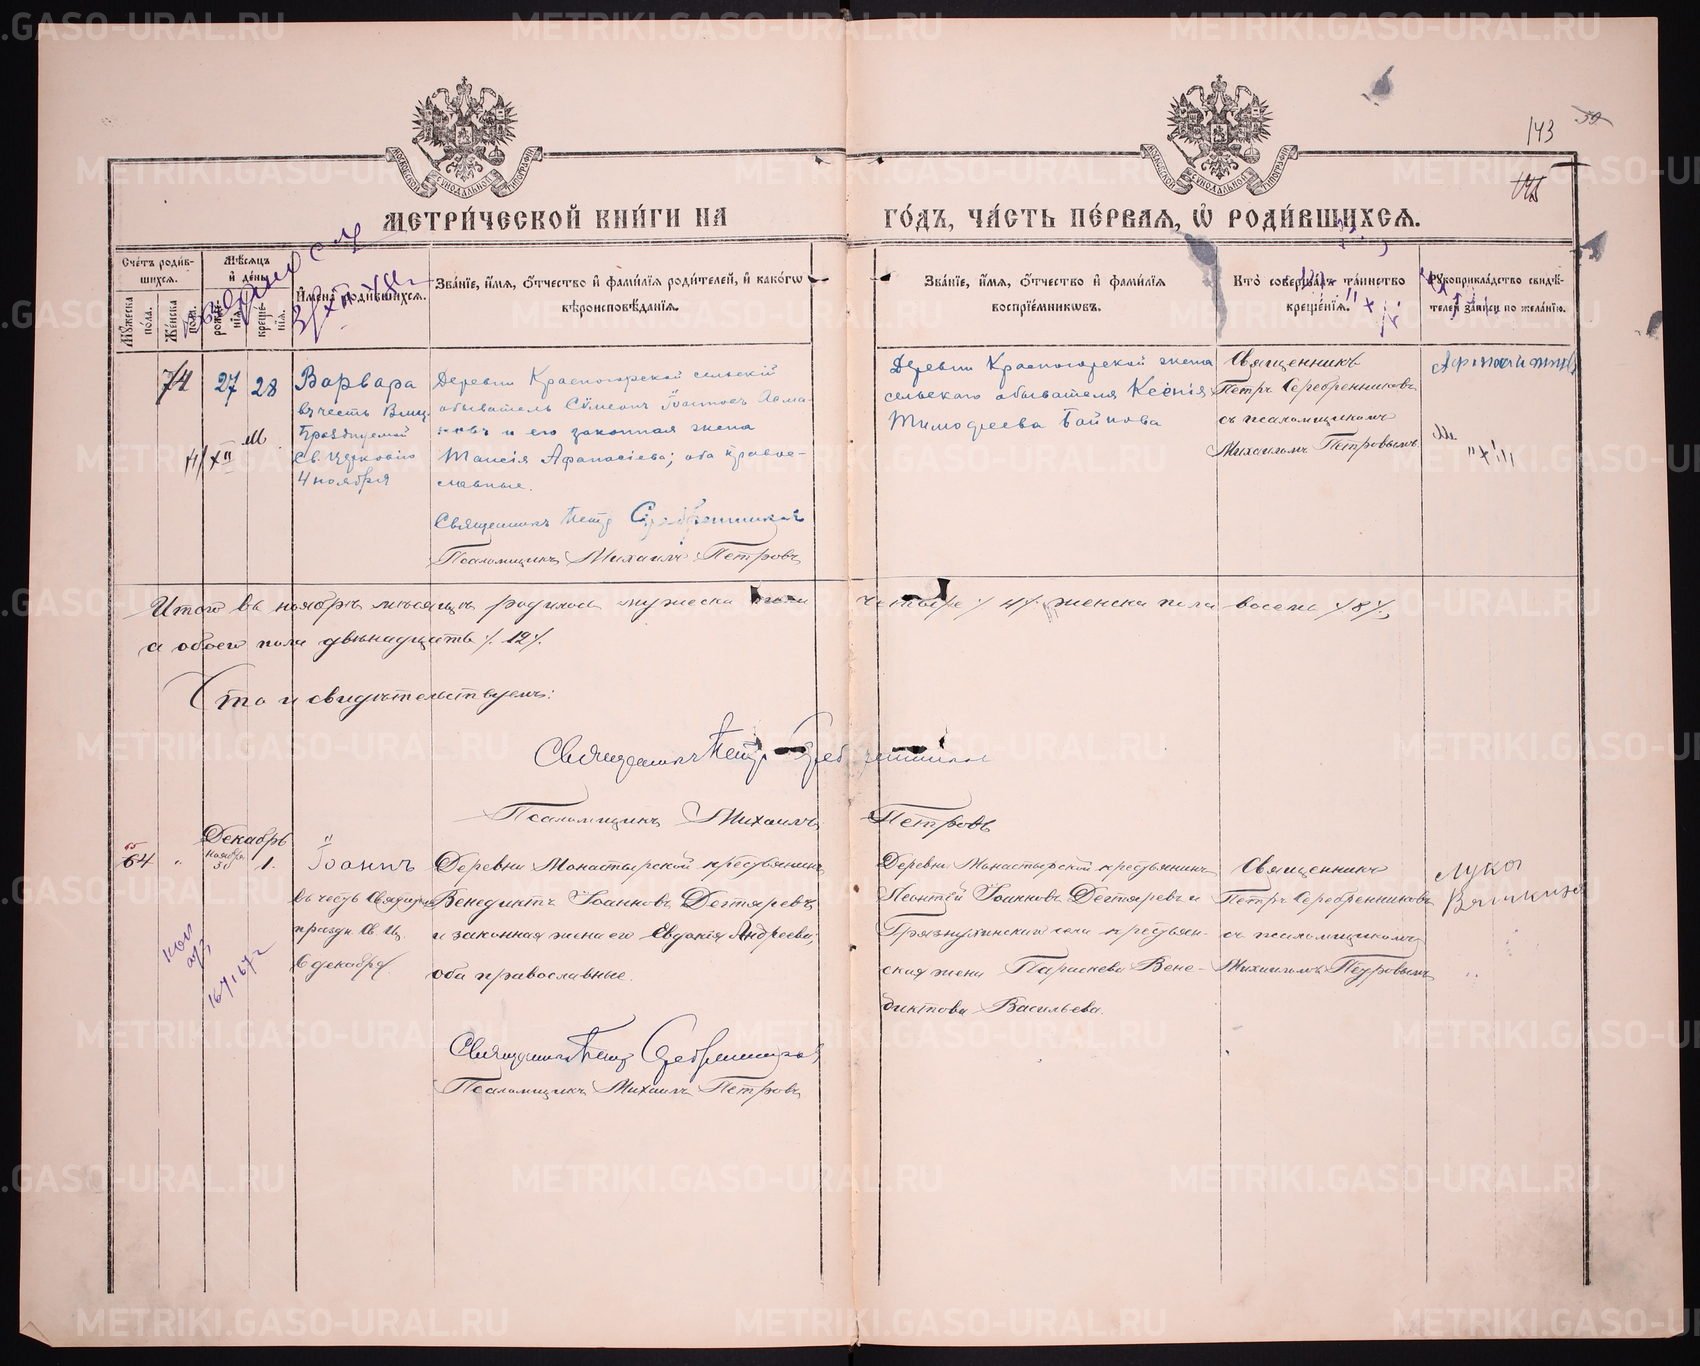 143
МЕТРИ́ЧЕСКОЙ КНИ́ГИ НА
ГО́ДЪ, ЧА́СТЬ ПЕ́РВАѦ, Ѡ҆ РОДИ́ВШИХСѦ.
Сче́тъ роди́в-
шихсѧ.
Мꙋ́жеска по́ла.
Же́нска по́ла.
Мѣ́сѧцъ
и҆ де́нь
рожде́-
нїѧ.
креще́-
нїѧ.
И҆мена̀ роди́вшихсѧ.
Зва́нїе, и҆́мѧ, ѻ҆́тчество и҆ фамилїѧ роди́телей, и҆ како́гѡ
вѣроисповѣ́данїѧ.
Зва́нїе, и҆́мѧ, ѻ҆́тчество и҆ фами́лїѧ
воспрїе́мниковъ.
Кто̀ соверша́лъ та́инство
креще́нїѧ.
Рꙋкоприкла́дство свидѣ́-
телей за́писи по жела́нїю.
74
27
28
Варвара
въ честь Вмц.
Празднуемой
Св. Церковію
4 ноября
Деревни Красногорской сельскій
обыватель Сѵмеонъ Іоанновъ
и его законная жена
Таисія Афанасіева; оба право-
славные.
Священникъ Петръ Серебренниковъ
Псаломщикъ Михаилъ Петровъ
Деревни Красногорской жена
сельскаго обывателя Ксенія
Тимофеева Байнова
Священникъ
Петръ Серебренниковъ
съ псаломщикомъ
Михаиломъ Петровымъ
Итого въ ноябрѣ мѣсяцѣ родилось мужеска пола четыре /4/ женска пола восемь /8/,
а обоего пола двѣнадцать /12/.
Что и свидѣтельствуемъ:
Священникъ Петръ Серебренниковъ
Псаломщикъ Михаилъ Петровъ
Декабрь
65
64
Ноября
30
1.
Іоаннъ
въ честь
праздн. Св. Ц.
6 декабря.
Деревни Монастырской крестьянинъ
Венедиктъ Іоанновъ Дегтяревъ
и законная жена его Евдокія Андреева;
оба православные.
Священникъ Петръ Серебренниковъ
Псаломщикъ Михаилъ Петровъ
Деревни Монастырской крестьянинъ
Леонтій Іоанновъ Дегтяревъ и
Грязнухинскаго села крестьян-
ская жена Параскева Вене-
диктова Васильева.
Священникъ
Петръ Серебренниковъ
съ псаломщикомъ
Михаиломъ Петровымъ
Лука
METRIKI.GASO-URAL.RU